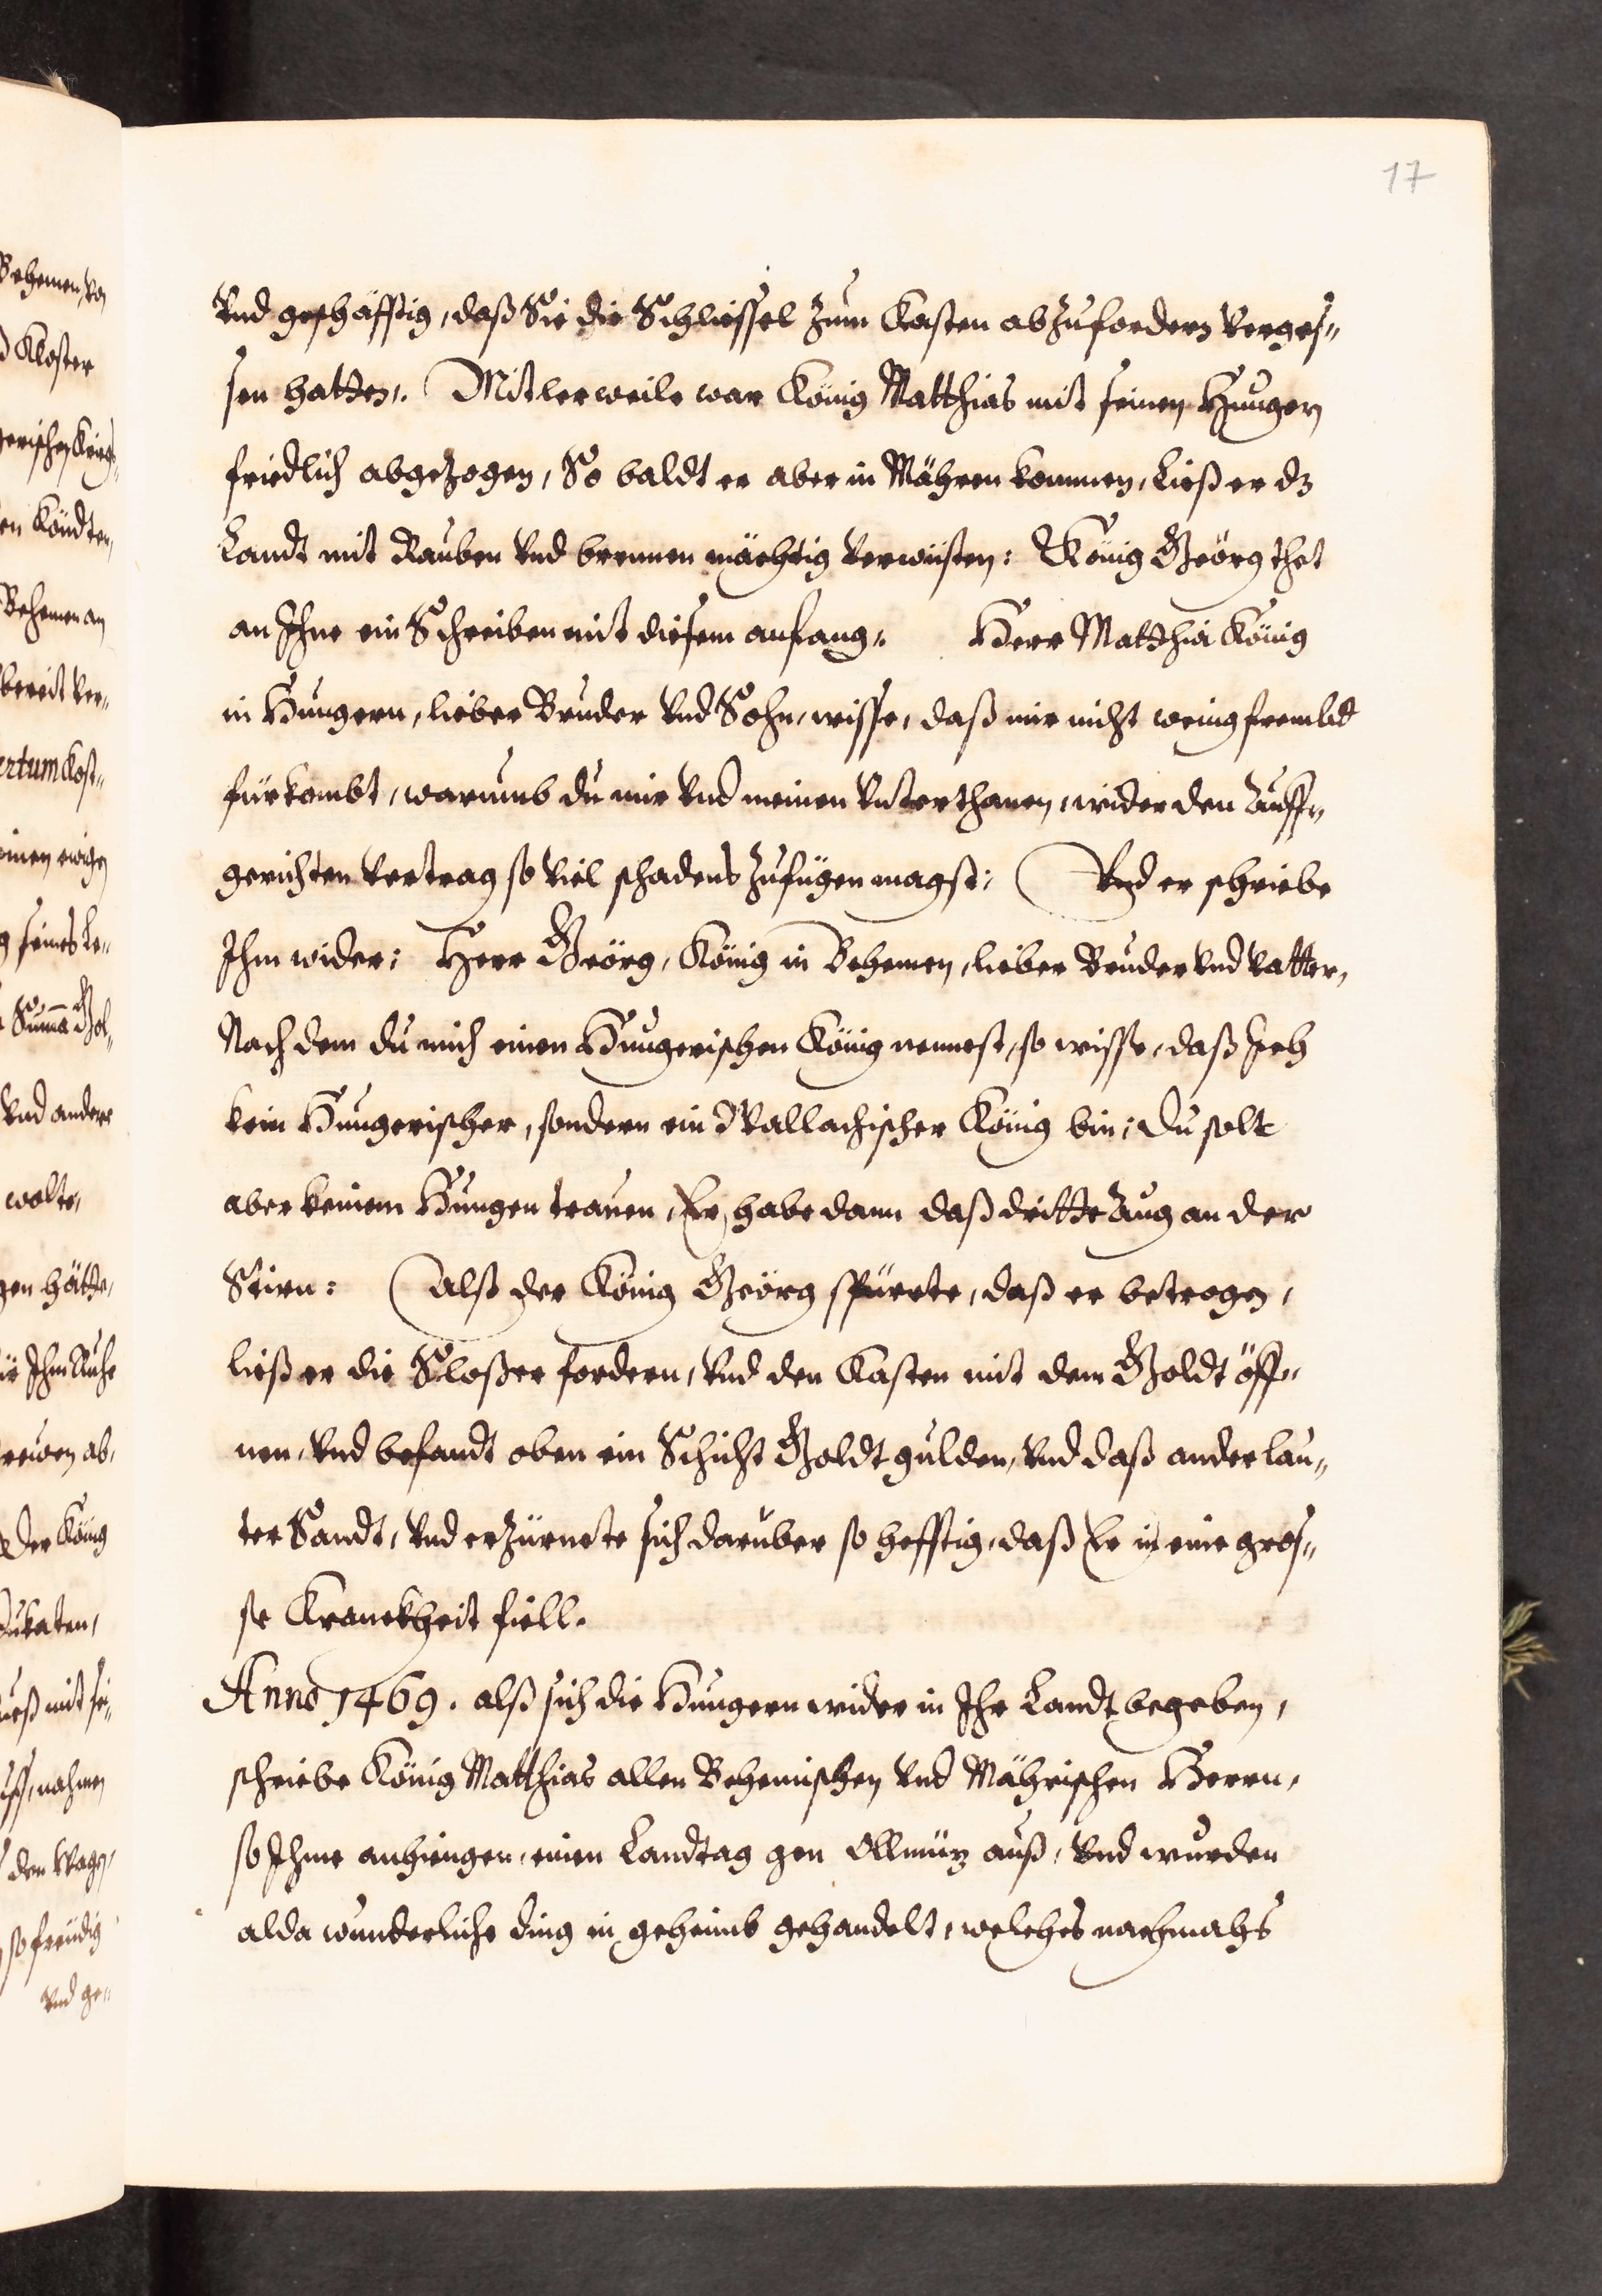 17
Vnd geschäfftig, daß Sie die Schliessel zum Kasten abzufordern verges„
sen hatten. Mitlerweile war König Matthias mit seinen Hungern
friedlich abgezogen, So baldt er aber in Mähren kommen, Ließ er dz
Landt mit Rauben vnd brennen mächtig verwüsten: König Geörg thet
an Ihne ein Schreiben mit diesem anfang. Herr Matthia König
in Hungern, lieber Bruder vnd Sohn, wisse, daß mir nicht wenig frembd
fürkombt, warumb du mir vnd meinen vnterthanen, wider den auff„
gerichten vertrag so viel schadens zufügen magst: Vnd er schriebe
Ihm wider: Herr Geörg, König in Behemen, lieber Bruder vnd vatter,
Nach dem du mich einen Hungerischen König nennest, so wisse, daß Ich
kein Hungerischer, sondern ein Wallachischer König bin; du solt
aber keinem Hungen trauen, Er habe dann daß dritte Aug an der
Stirn: Alß der König Geörg spürete, daß er betrogen,
ließ er die Sloßer fordern, vnd den Kasten mit dem Goldt öff„
nen, vnd befandt oben ein Schicht Goldt gulden, vnd daß ander lau„
ter Sandt, vnd erzürnete sich daruber so hefftig, daß Er in eine gros„
se Kranckheit fiell.
Anno 1469. alß sich die Hungern wider in Ihr Landt begeben,
schriebe König Matthias allen Behemischen vnd Mährischen Herrn,
so Ihme anhiengen, einen Landtag gen Ollmüz auß, vnd wurden
alda wunderliche ding in geheimb gehandelt, welches nachmahls